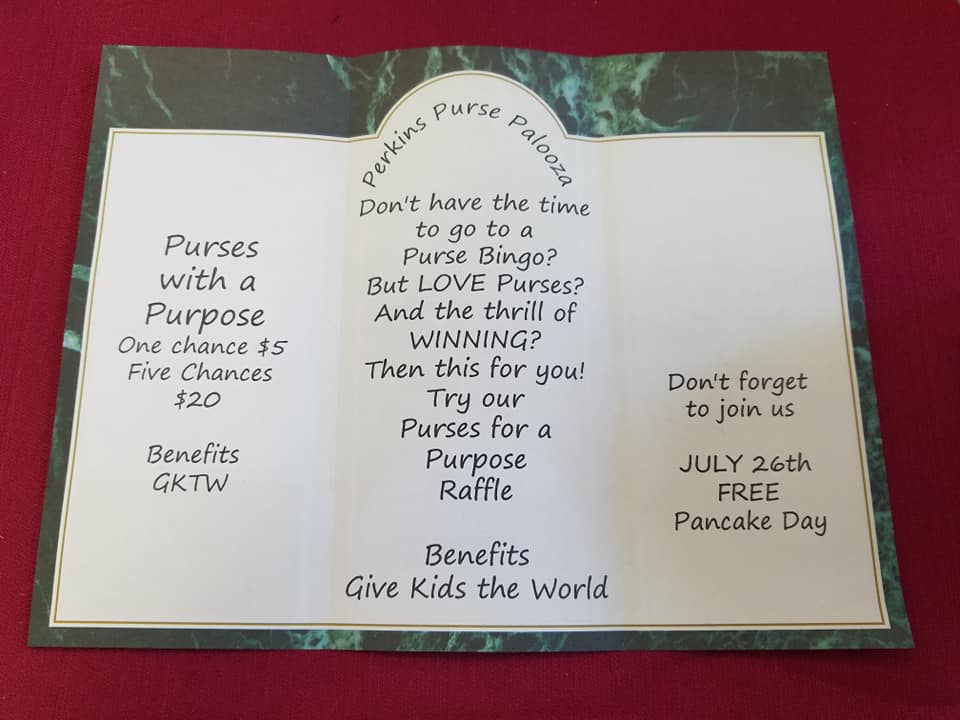 Purses
with a
Purpose
One chance $5
Five Chances
$20
Benefits
GKTW
Perkins Purse Palooza
Don't have the time
to go to a
Purse Bingo?
But LOVE Purses?
And the thrill of
WINNING?
Then this for you!
Try our
Purses for a
Purpose
Raffle
Benefits
Give Kids the World
Don't forget
to join us
JULY 26th
FREE
Pancake Day